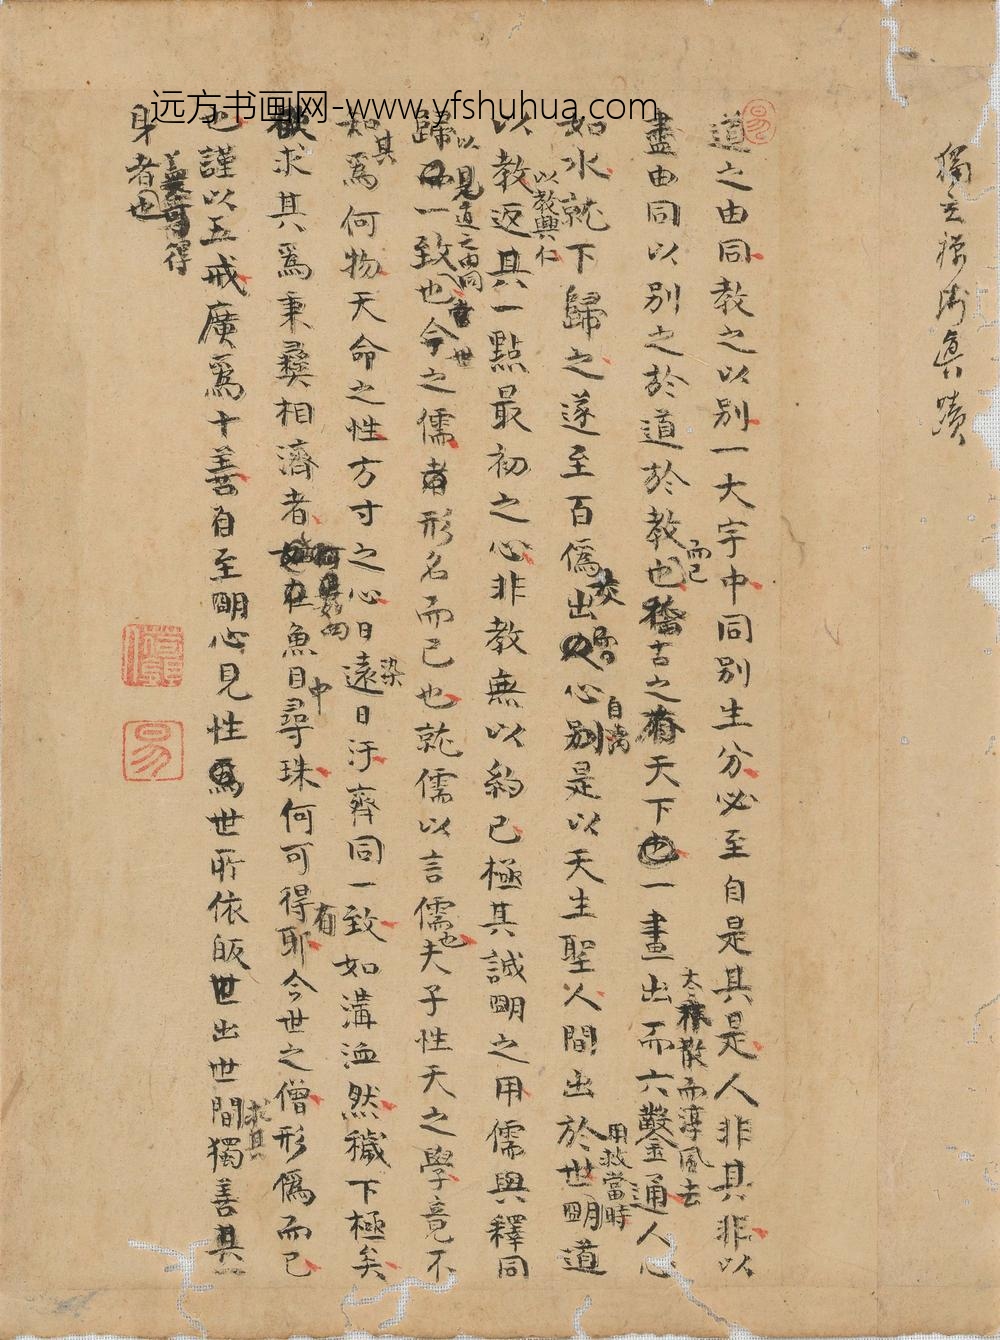 远方书画网-www.yfshuhua.com
獨立禅師真蹟
道之由同教之以別一大宇中同別生分必至自是其是人非其非以
盡由同以別之於道於教也而已古之有天下也一畫出太散而淳風去而六鑿通人心
如水就下歸之遂至百偽出心自別是以天生聖人間出於世用救當時明道
以教以教興仁返其一點最初之心非教無以約己極其誠明之用儒與釋同
歸以見道之由同一致也今之儒者形名而已也就儒以言儒也夫子性天之學竟不
知其為何物天命之性方寸之心日遠日染日汙齊同一致如溝洫然穢下極矣
欲求其為秉彝相濟者在魚目中尋珠何可得耶今世之僧形偽而已
也謹以五戒廣為十善自至明心見性為世所依皈世出世間求其獨善其
身者也得
易